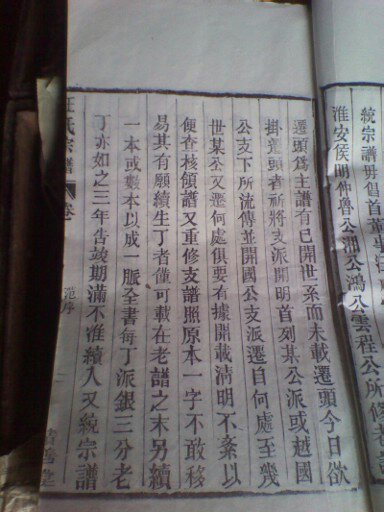 統宗譜
淮安侯明仲魯公淵公鴻公雲程公所修
遷頭爲主譜有已開世系而未載遷頭今日欲
掛遷頭者祈將支派開明首列某公派或越國
公支下所流傳並開國公支派遷自何處至幾
世某公又遷何處俱要有據開載清明不紊以
便查核領譜又重修支譜照原本一字不敢移
易其有願續生丁者僅可載在老譜之末另續
一本或數本以成一脈全書每丁派銀三分老
丁亦如之三年告竣期滿不准續入又統宗譜
汪氏宗譜 卷
善堂